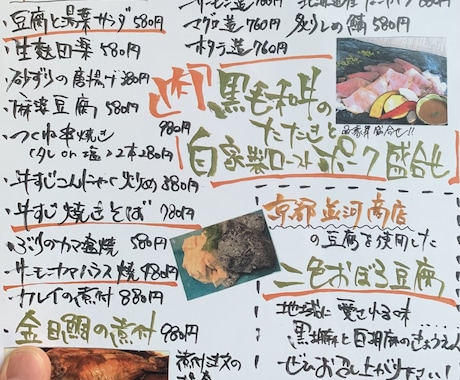 豆腐と湯葉サラダ 580円
・生麩田楽 580円
・砂ずりの唐揚げ 380円
・麻婆豆腐 580円
・つくね串焼き
(タレ or 塩) 2本280円
・牛すじこんにゃく炒め 880円
・牛すじ焼きそば 780円
・ぶりのカマ塩焼 580円
・サーモンハラス焼 480円
・カレイの煮付 880円
・金目鯛の煮付 980円
サーモン造 760円
マグロ造 760円
ホタテ造 760円
炙りしめ鯖 580円
黒毛和牛の
たたきと
自家製ローストポーク盛合せ
980円
京都並河商店
の豆腐を使用した
二色おぼろ豆腐
地域に愛される味
黒胡麻と白胡麻のきょうえん
ぜひお召し上がり下さい!
煮付注文の